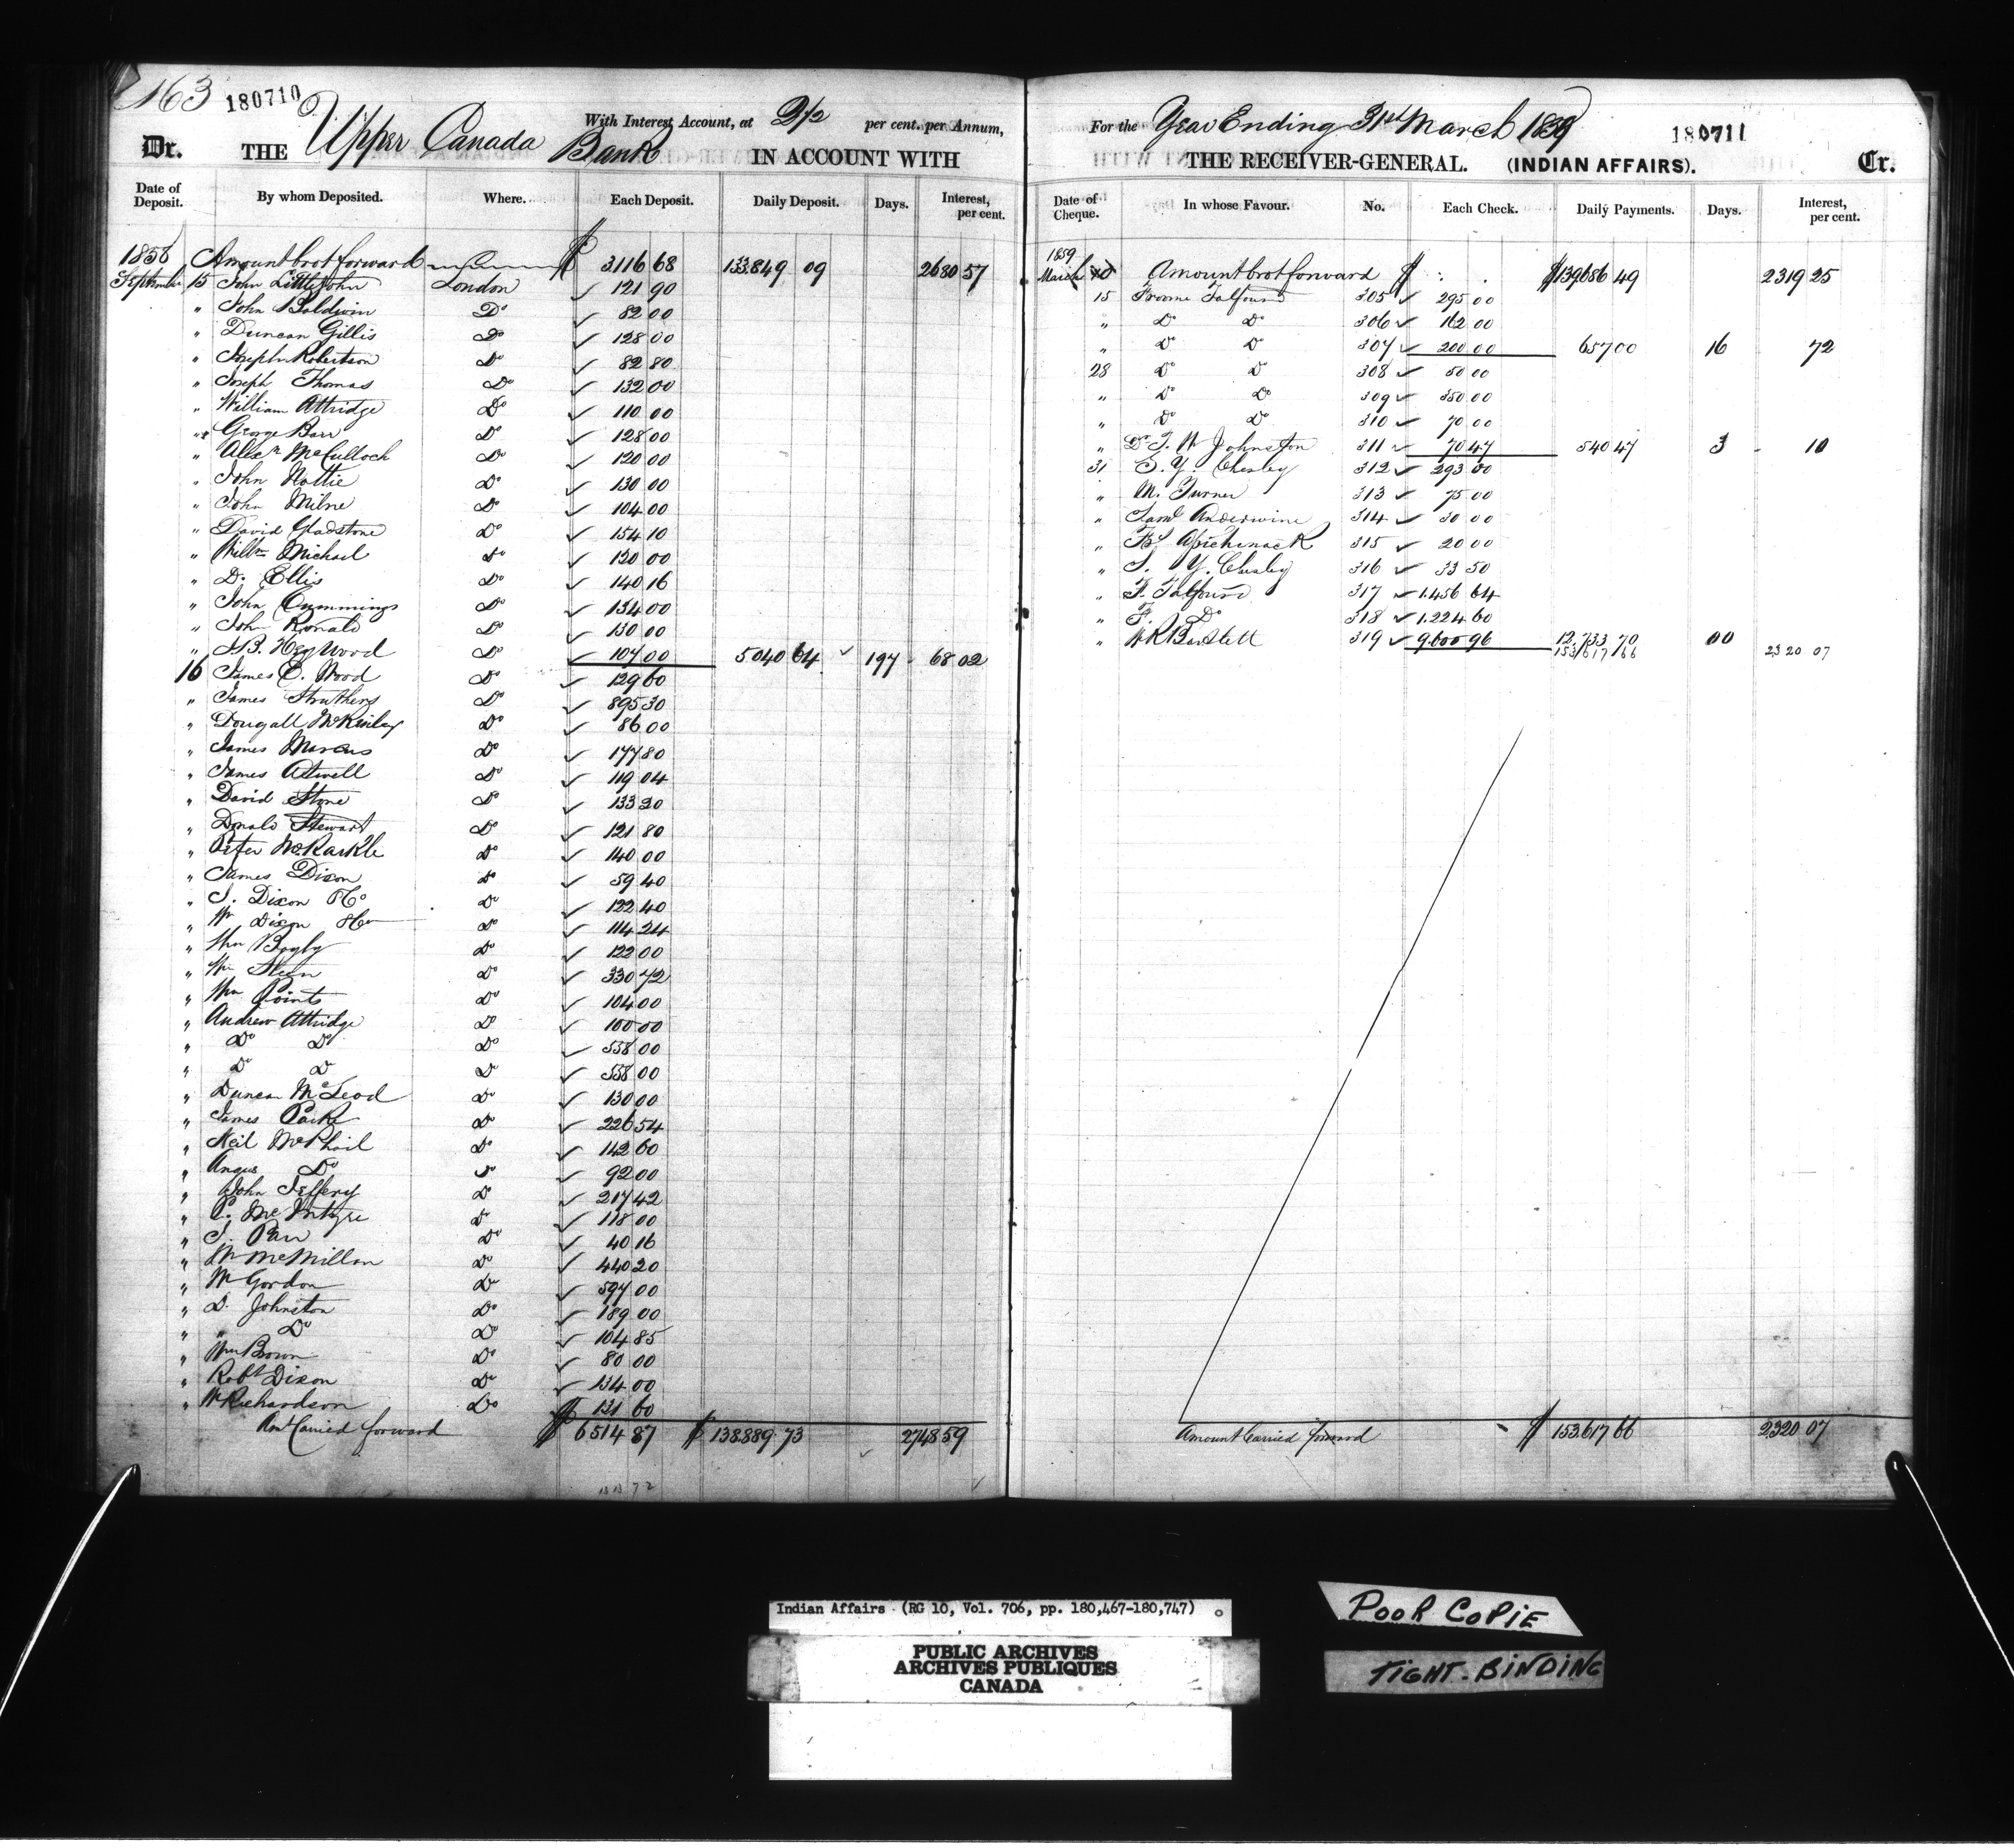 163 180710
Dr. THE Upper Canada Bank With Interest Account, at 2 1/2 per cent. per Annum, IN ACCOUNT WITH
Date of Deposit. By whom Deposited. Where. Each Deposit. Daily Deposit. Days. Interest, per cent.
1858 Amount brot forward $ 3116 68 133.849 09 2680 57
September 15 John Littlejohn London ✓ 121 90
" John Baldwin Do ✓ 82 00
" Duncan Gillis Do ✓ 128 00
" Joseph Robertson Do ✓ 82 80
" Joseph Thomas Do ✓ 132 00
" William Attridge Do ✓ 110 00
" George Barr Do ✓ 128 00
" Alexr McCulloch Do ✓ 120 00
" John Nottie Do ✓ 130 00
" John Milne Do ✓ 104 00
" David Gladstone Do ✓ 154 10
" Willm Michael Do ✓ 120 00
" D. Ellis Do ✓ 140 16
" John Cummings Do ✓ 134 00
" John Ronald Do ✓ 130 00
" Heywood Do ✓ 104 00 5040 64 ✓ 197 68 02
16 James C. Wood Do ✓ 129 60
" James Struthers Do ✓ 895 30
" Dougall McKinlay Do ✓ 86 00
" James Marcus Do ✓ 177 80
" James Atwell Do ✓ 119 04
" David Stone Do ✓ 133 20
" Donald Stewart Do ✓ 121 80
" Peter McKarkle Do ✓ 140 00
" James Dixon Do ✓ 59 40
" J. Dixon Do ✓ 122 40
" Wm Dixon Do ✓ 114 24
" Wm Bagly Do ✓ 122 00
" Wm Do ✓ 330 72
" Wm Points Do ✓ 104 00
" Andrew Attridge Do ✓ 100 00
" Do Do Do ✓ 538 00
" Do Do Do ✓ 538 00
" Duncan McLeod Do ✓ 130 00
" James Park Do ✓ 226 54
" Neil McPhail Do ✓ 142 60
" Angus Do Do ✓ 92 00
" John Jeffery Do ✓ 217 42
" P. McIntyre Do ✓ 118 00
" J. Parr Do ✓ 40 16
" W McMillan Do ✓ 440 20
" W Gordon Do ✓ 597 00
" D. Johnston Do ✓ 189 00
" " Do Do ✓ 104 85
" Wm Brown Do ✓ 80 00
" Robt Dixon Do ✓ 134 00
" W Richardson Do $ 131 60
Amt Carried forward $ 6514 87 $ 138.889 73 ✓ 2748 59
For the Year Ending 31st March 1859 180711
THE RECEIVER-GENERAL. (INDIAN AFFAIRS). Cr.
Date of Cheque. In whose Favour. No. Each Check. Daily Payments. Days. Interest, per cent.
1859
March 10 Amount brot forward $ $139686 49 2319 25
15 Froome Talfourd 305 ✓ 295 00
" Do Do 306 ✓ 162 00
" Do Do 307 ✓ 200 00 657 00 16 72
28 Do Do 308 ✓ 50 00
" Do Do 309 ✓ 350 00
" Do Do 310 ✓ 70 00
" Dr T. W Johnston 311 ✓ 70 47 540 47 3 10
31 S. Y. Chesley 312 ✓ 293 00
" M. Turner 313 ✓ 75 00
" Saml Anderwine 314 ✓ 30 00
" 315 ✓ 20 00
" S. Y. Chesley 316 ✓ 33 50
" F. Talfourd 317 ✓ 1.456 64
" F. Do 318 ✓ 1.224 60
" W R Bartlett 319 ✓ 9.600 96 12,733 70 00
153/617/66 2320 07
Amount Carried forward $ 153.617 66 2320 07
Indian Affairs (RG 10, Vol. 706, pp. 180,467-180,747)
PUBLIC ARCHIVES
ARCHIVES PUBLIQUES
CANADA
POOR COPIE
TIGHT-BINDING